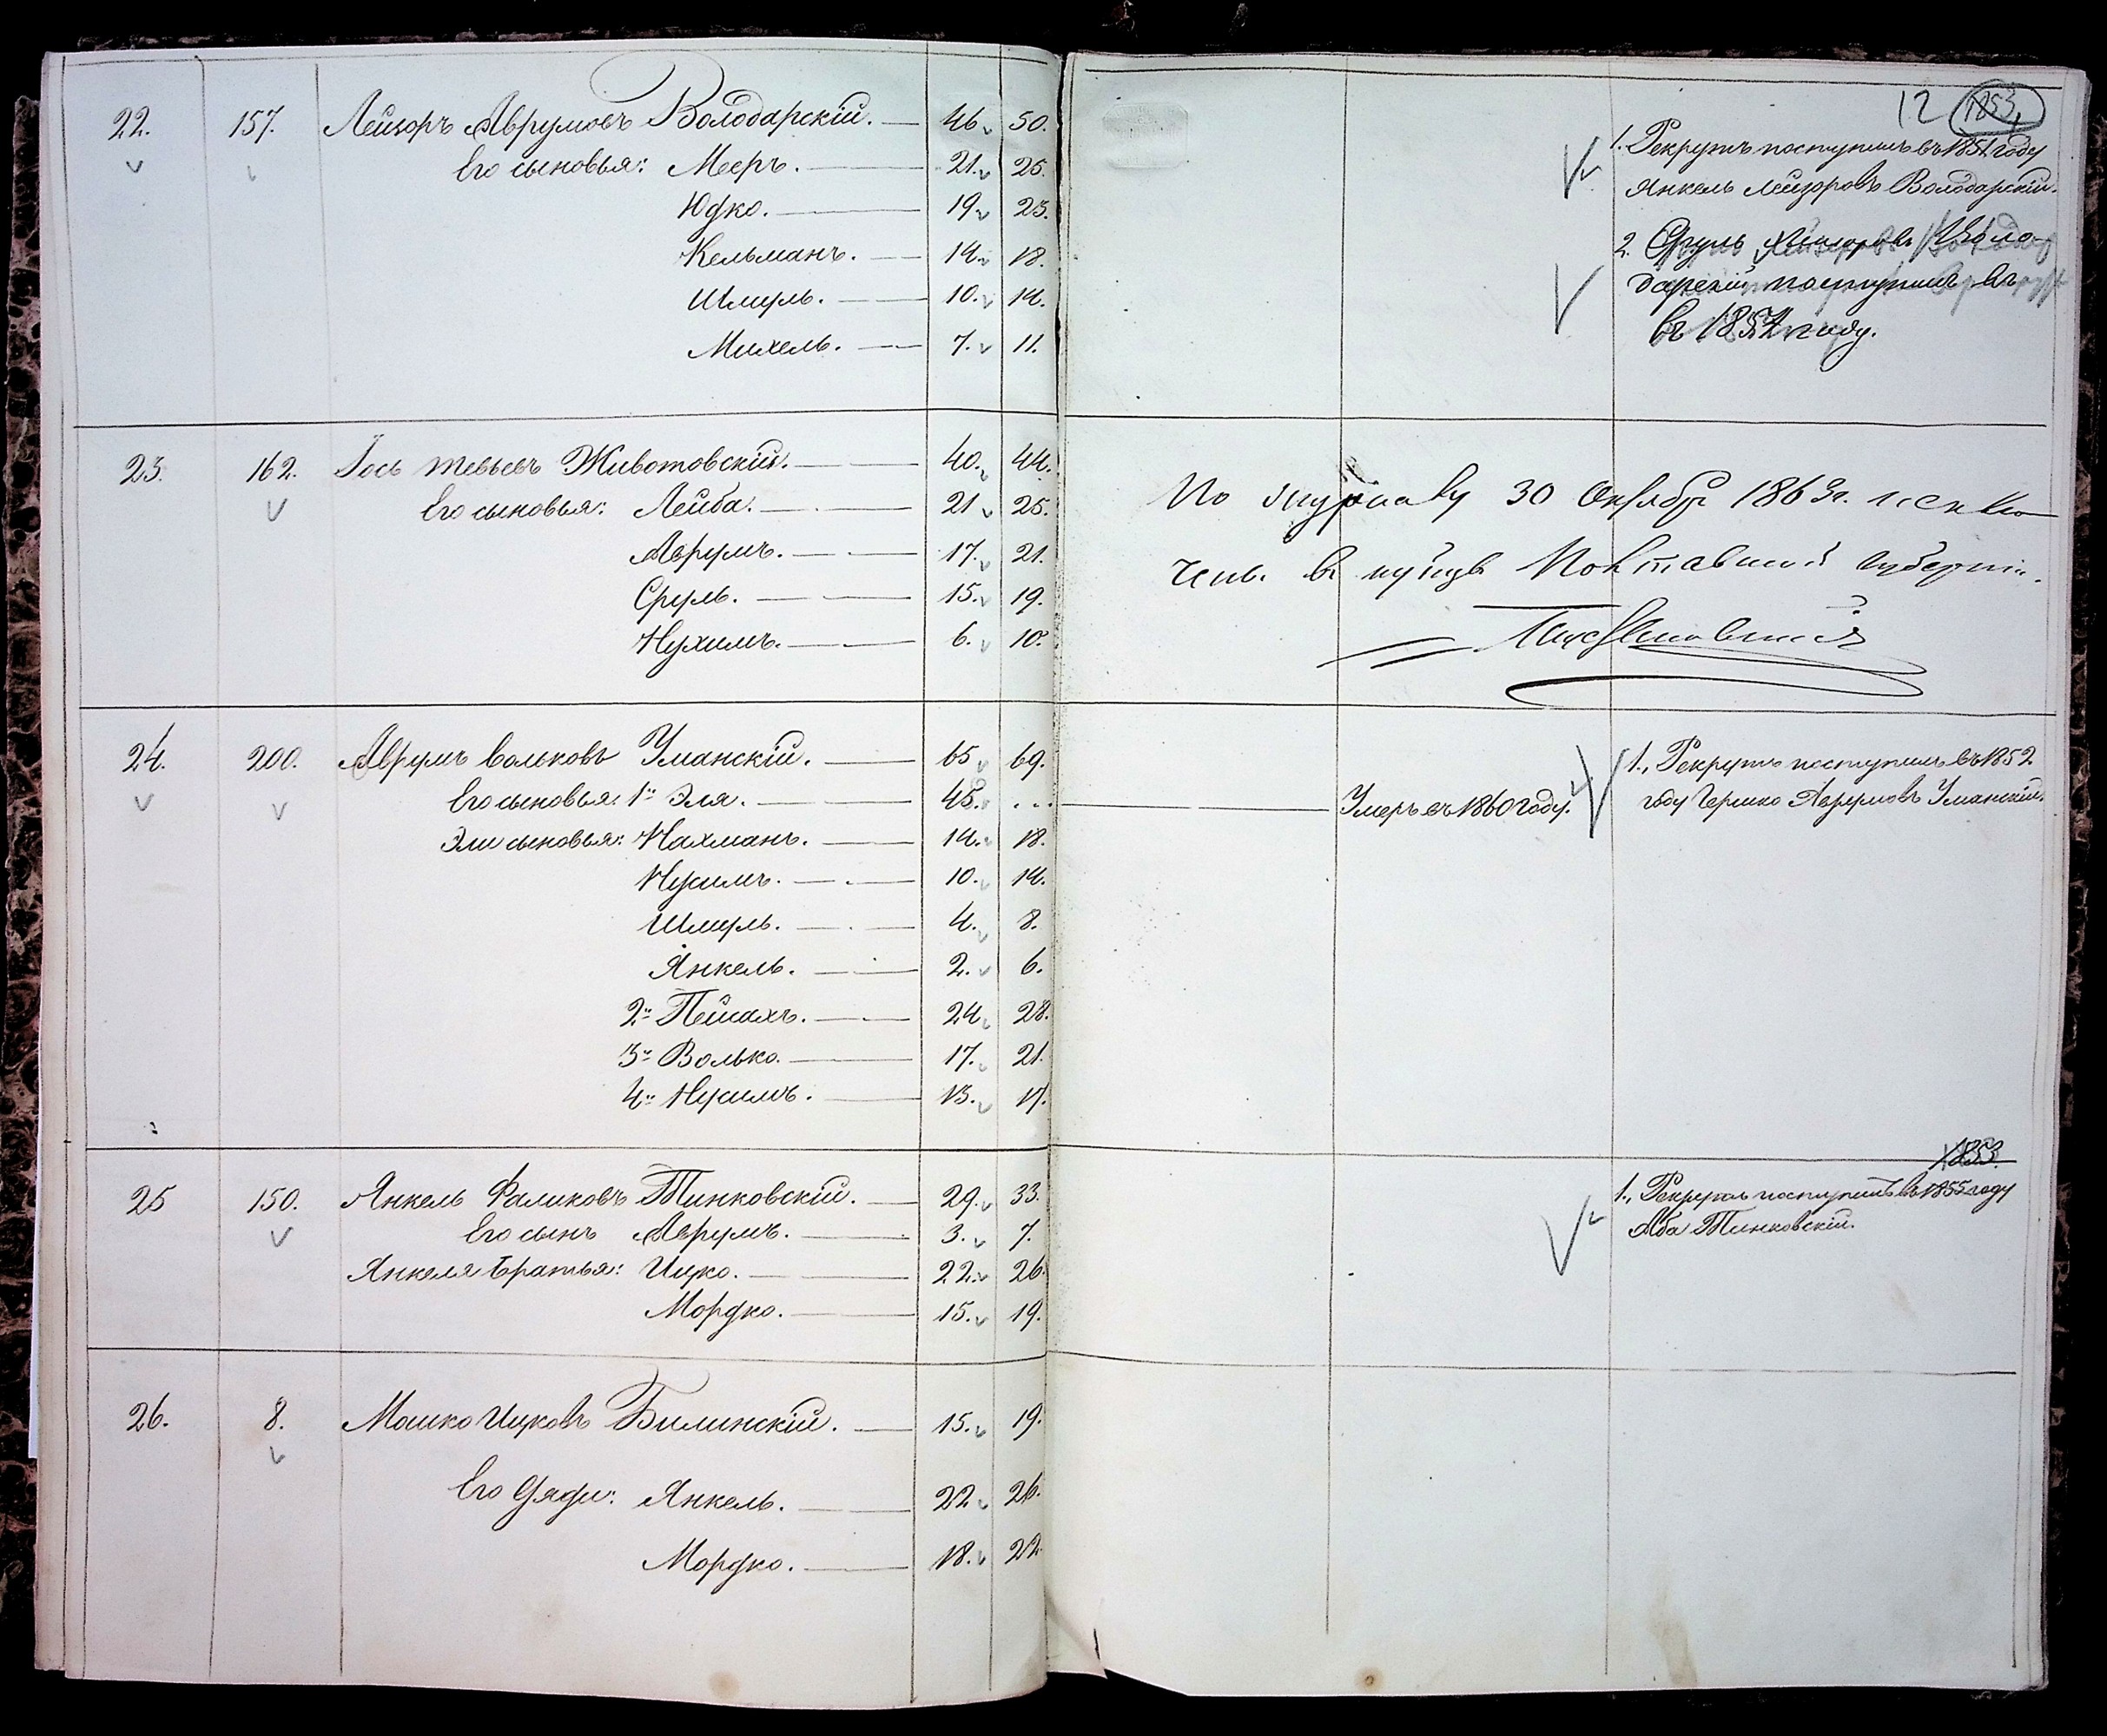 22. 157. Лейзоръ Аврумовъ Володарскій. 46. 50.
Его сыновья: Мееръ. 21. 25.
Юдко. 19. 23.
Кельманъ. 14. 18.
Шмуль. 10. 14.
Михель. 7. 11.
12 1853
1. Рекрутъ поступилъ въ 1851 году
Янкель Лейзоровъ Володарскій.
2. Сруль Лейзоровъ Воло-
дарскій поступилъ въ
въ 1854 году.
23. 162. Іось Тевьевъ Животовскій. 40. 44.
Его сыновья: Лейба. 21 25.
Аврумъ. 17. 21.
Сруль. 15. 19.
Нухимъ. 6. 10.
По журналу 30 Октября 1863 г. исклю
ченъ въ купцы Полтавской губерніи.
24. 200. Аврумъ Вольковъ Уманскій. 65 69.
Его сыновья: 1й Эля. 45. ...
Эли сыновья: Нахманъ. 14. 18.
Нусимъ. 10. 14.
Шмуль. 4. 8.
Янкель. 2. 6.
2й Пейсахъ. 24. 28.
3й Волько. 17. 21.
4й Нусимъ. 13. 17.
Умеръ въ 1860 году.
1., Рекрутъ поступилъ въ 1852
году Гершко Аврумовъ Уманскій.
25 150. Янкель Фаликовъ Тинковскій. 29. 33.
Его сынъ Аврумъ. 3. 7.
Янкеля братья: Ицко. 22. 26.
Мордко. 15. 19.
1853.
1., Рекрутъ поступилъ въ 1855 году
Аба Тинковскій.
26. 8. Мошко Ицковъ Билинскій. 15. 19.
Его дяди: Янкель. 22. 26.
Мордко. 18. 22.